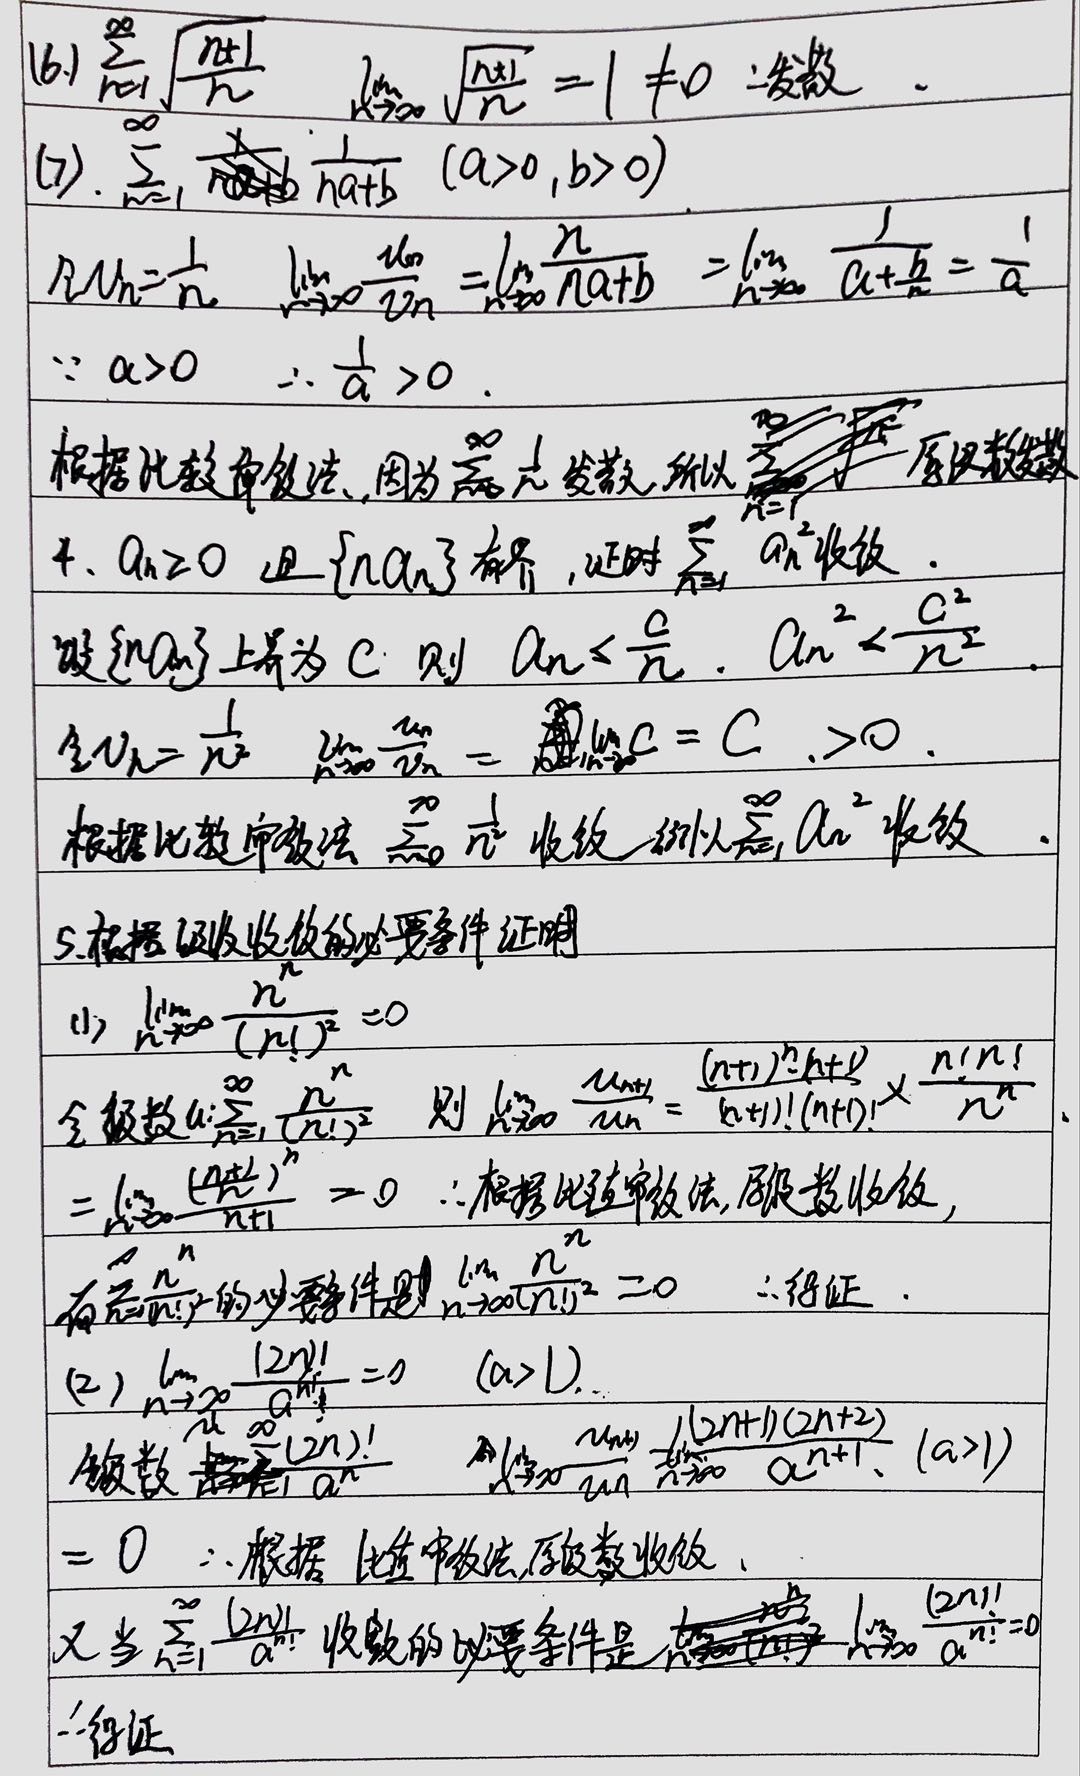 (6.) ∑_{n=1}^{∞} √((n+1)/n) lim_{n→∞} √((n+1)/n) = 1 ≠ 0 ∴发散.
(7). ∑_{n=1}^{∞} 1/(na+b) (a>0, b>0)
令Vn=1/n lim_{n→∞} un/vn = lim_{n→∞} n/(na+b) = lim_{n→∞} 1/(a+b/n) = 1/a
∵ a>0 ∴ 1/a >0.
根据比较审敛法,因为 ∑^{∞} 1/n 发散,所以 原级数发散
4、an≥0 且{nan}有界,证明 ∑_{n=1}^{∞} an² 收敛.
设{nan}上界为C 则 an ≤ C/n. an² ≤ C²/n².
令Vn=1/n² lim_{n→∞} un/vn = lim_{n→∞} C = C.>0.
根据比较审敛法 ∑_{n=0}^{∞} 1/n² 收敛 所以 ∑_{n=1}^{∞} an² 收敛.
5.根据级收收敛的必要条件证明
(1) lim_{n→∞} n^n/(n!)² =0
令级数u: ∑_{n=1}^{∞} n^n/(n!)² 则 lim_{n→∞} u_{n+1}/un = (n+1)^n·(n+1)/((n+1)!(n+1)!) × n!n!/n^n.
= lim_{n→∞} ((n+1)/n)^n/(n+1) = 0 ∴根据比值审敛法,原级数收敛,
有 ∑ n^n/(n!)² 的必要条件是 lim_{n→∞} n^n/(n!)² =0 ∴得证.
(2) lim_{n→∞} (2n)!/a^{n!} =0 (a>1).
令级数 u ∑_{n=1}^{∞} (2n)!/a^n lim_{n→∞} u_{n+1}/un = lim_{n→∞} (2n+1)(2n+2)/a^{n+1}. (a>1)
= 0 ∴根据 比值审敛法,原级数收敛.
又当 ∑_{n=1}^{∞} (2n)!/a^{n!} 收敛的必要条件是 lim_{n→∞} (2n)!/a^{n!} =0
∴得证